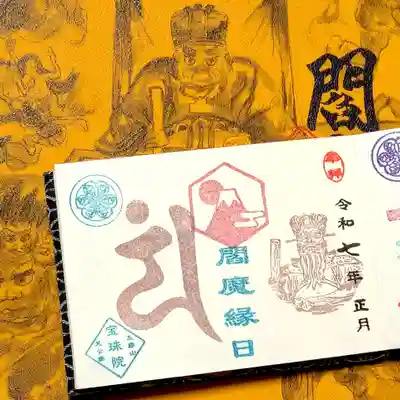 閻
令和七年正月
閻魔縁日
宝珠院